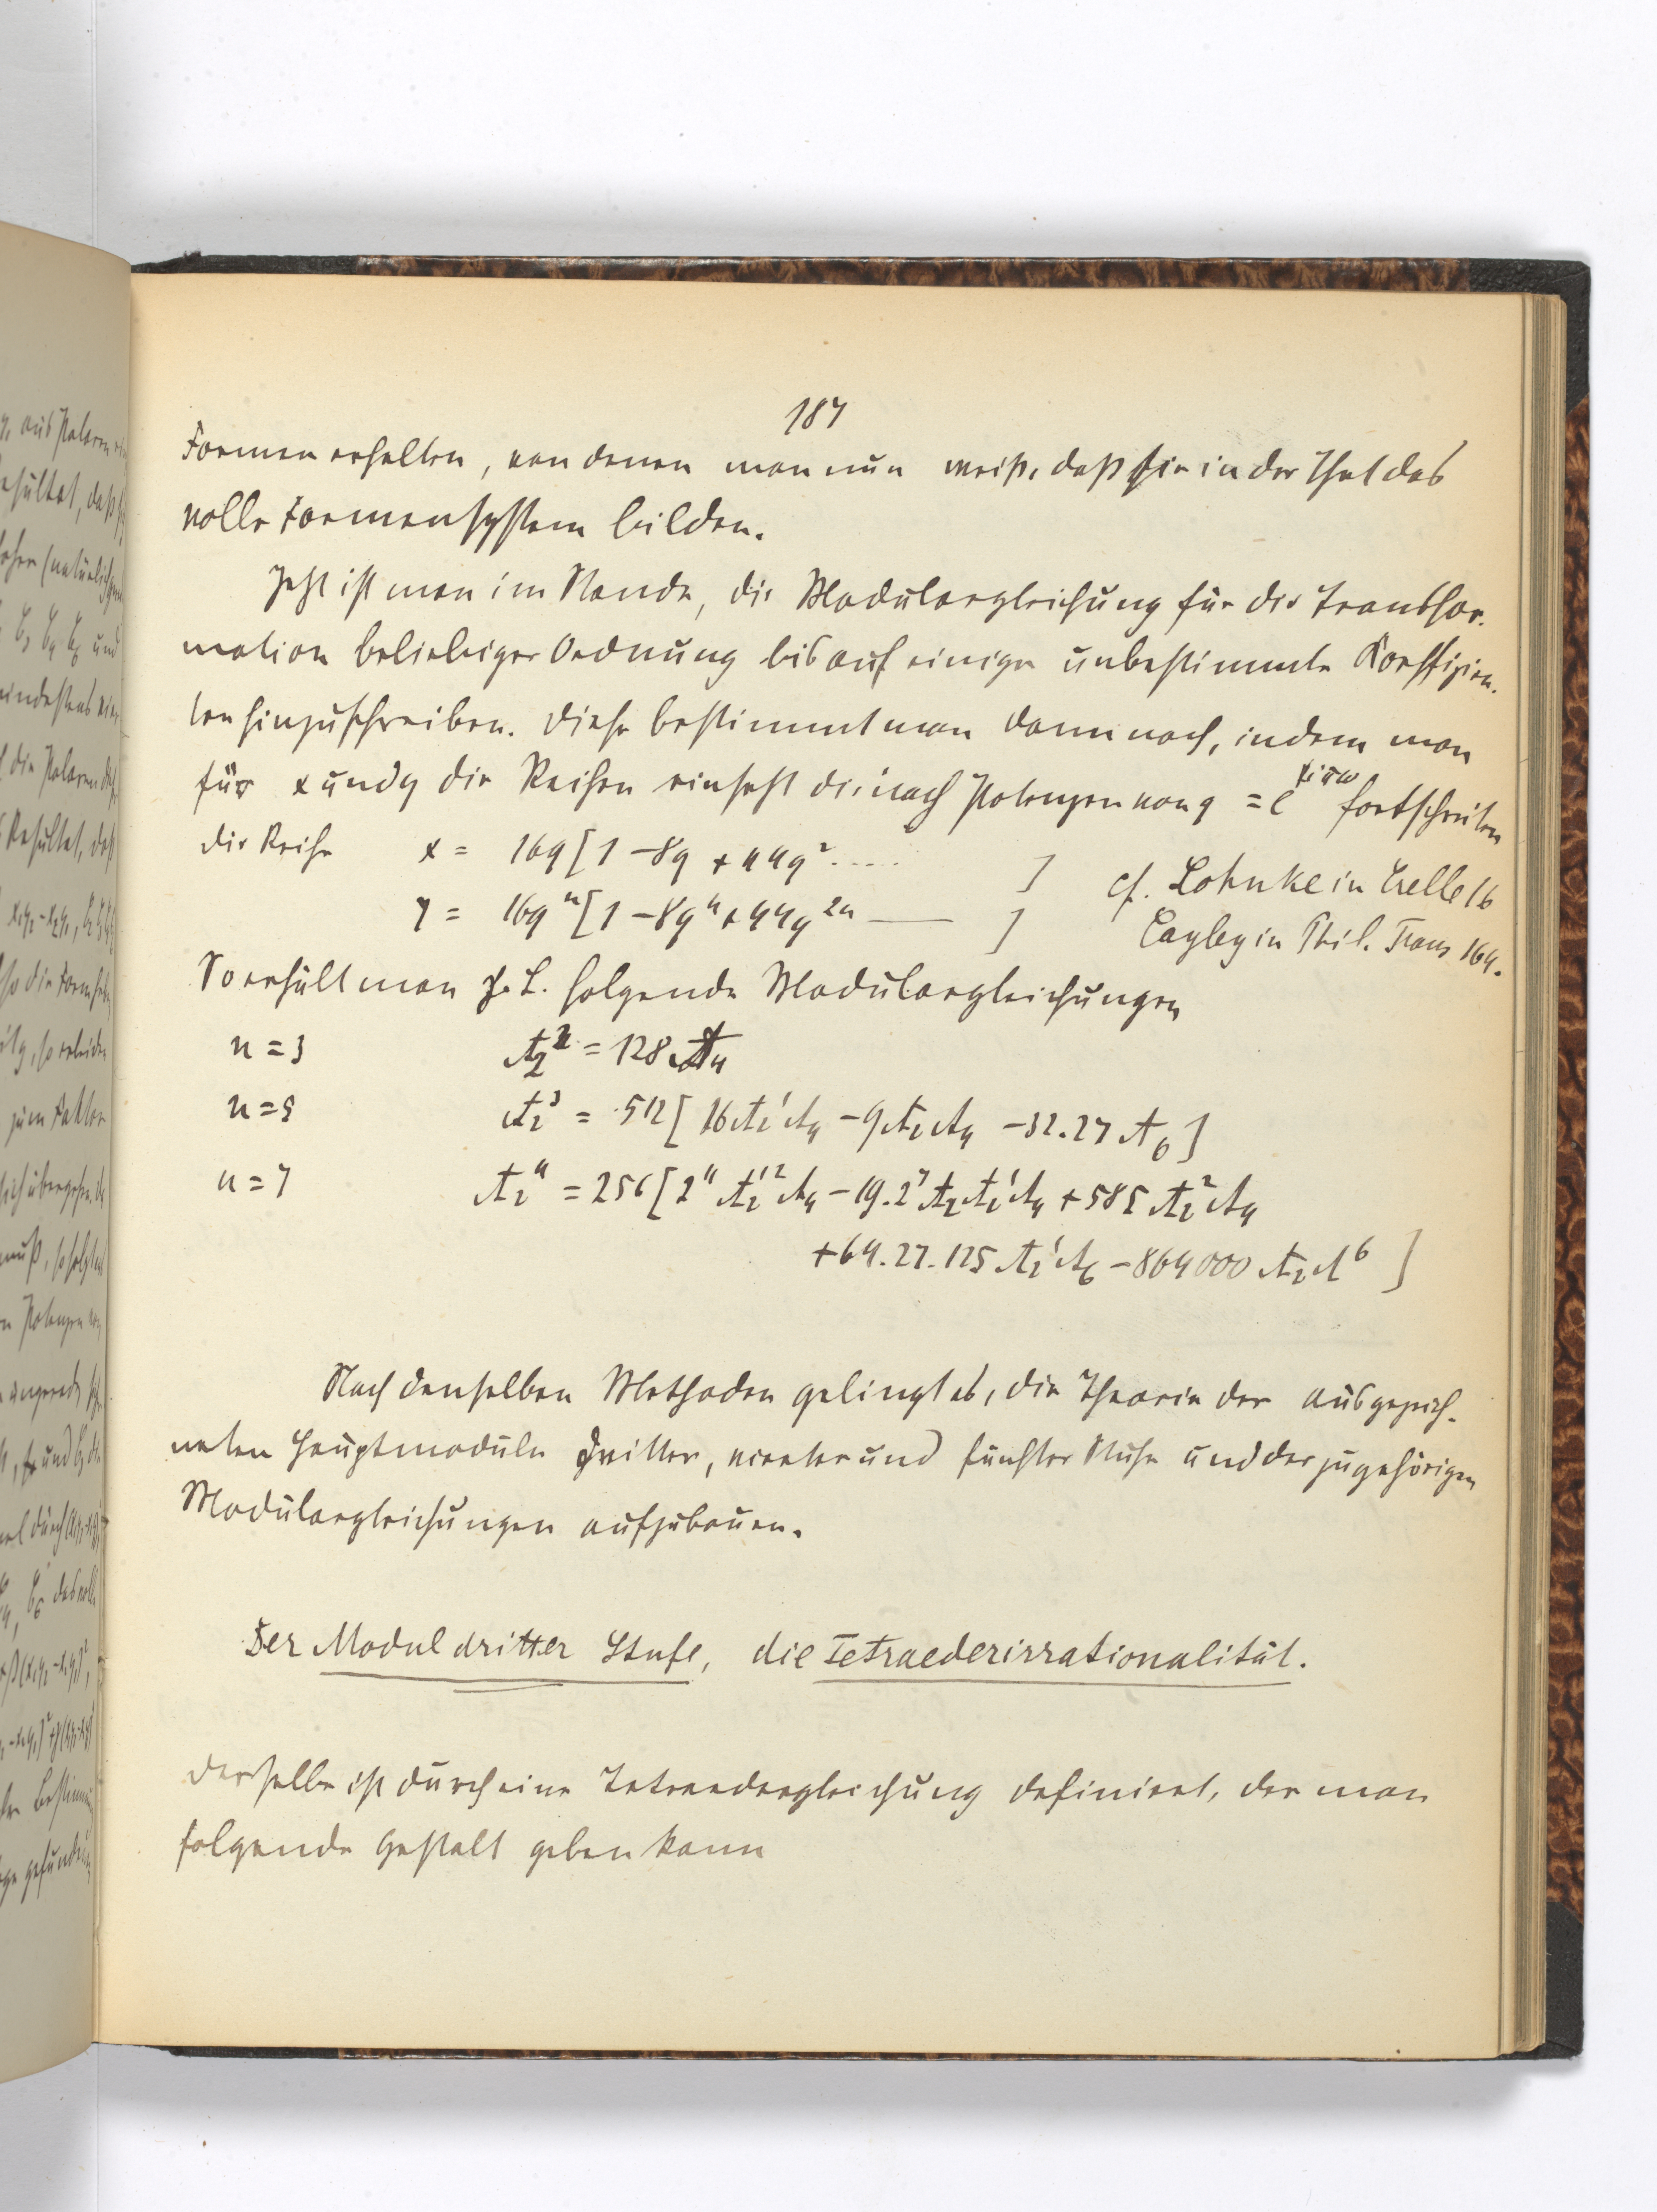 187
Formen erhalten, von denen man nun weiß, daß sie in der That das
volle Formensystem bilden.
Jetzt ist man im Stande, die Modulargleichung für die Transfor-
mation beliebiger Ordnung bis auf einige unbestimmte Koeffizien-
ten hinzuschreiben. Diese bestimmt man dann noch, indem man
für x und y die Reihen einsetzt die nach Potenzen von q = e^{πiω} fortschreiten
die Reihe x = 16q [1 - 8q + 44q² ..... ] cf. Sohnke in Crelle 16
y = 16q^n [1 - 8q^n + 44q^{2n} — ] Cayley in Phil. Trans 164.
So erhält man z. B. folgende Modulargleichungen
n = 3 A_2^2 = 128 A_4
n = 5 A_2^3 = 512 [16 A_2' A_4 - 9 A_2 A_4 - 32.27 A_6]
n = 7 A_2^4 = 256 [2^{11} A_2'^2 A_4 - 19.2^7 A_2 A_2' A_4 + 585 A_2^2 A_4
+ 64.27.125 A_2' A_6 - 864000 A_2 A^6 ]
Nach denselben Methoden gelingt es, die Theorie der ausgezeich-
neten Hauptmoduln dritter, vierter und fünfter Stufe und der zugehörigen
Modulargleichungen aufzubauen.
Der Modul dritter Stufe, die Tetraederirrationalität.
Derselbe ist durch eine Tetraedergleichung definiert, der man
folgende Gestalt geben kann